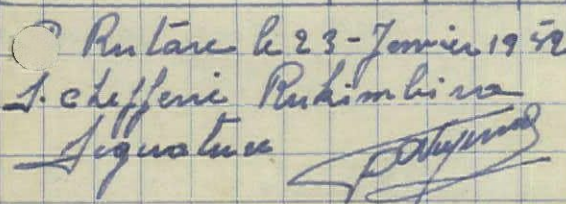 Rutare le 23-Janvier 1952
S. chefferie Rukimbira
Signature